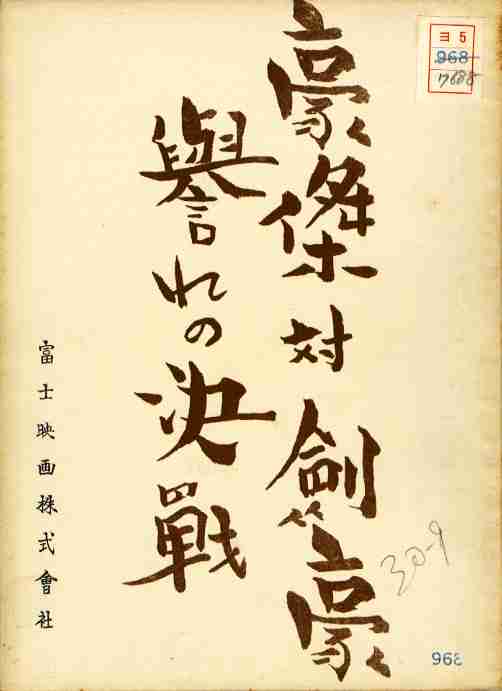 豪傑対劍豪
譽れの決戰
富士映画株式會社
ヨ5
968
30-9
968